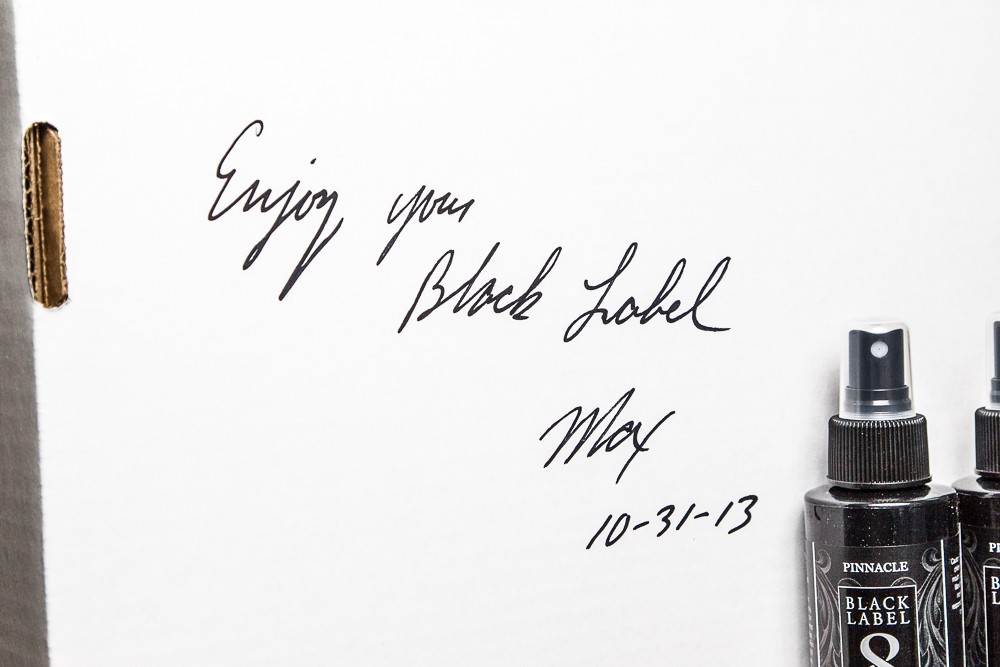 Enjoy your
Black Label
Max
10-31-13
PINNACLE
BLACK
LABEL
8